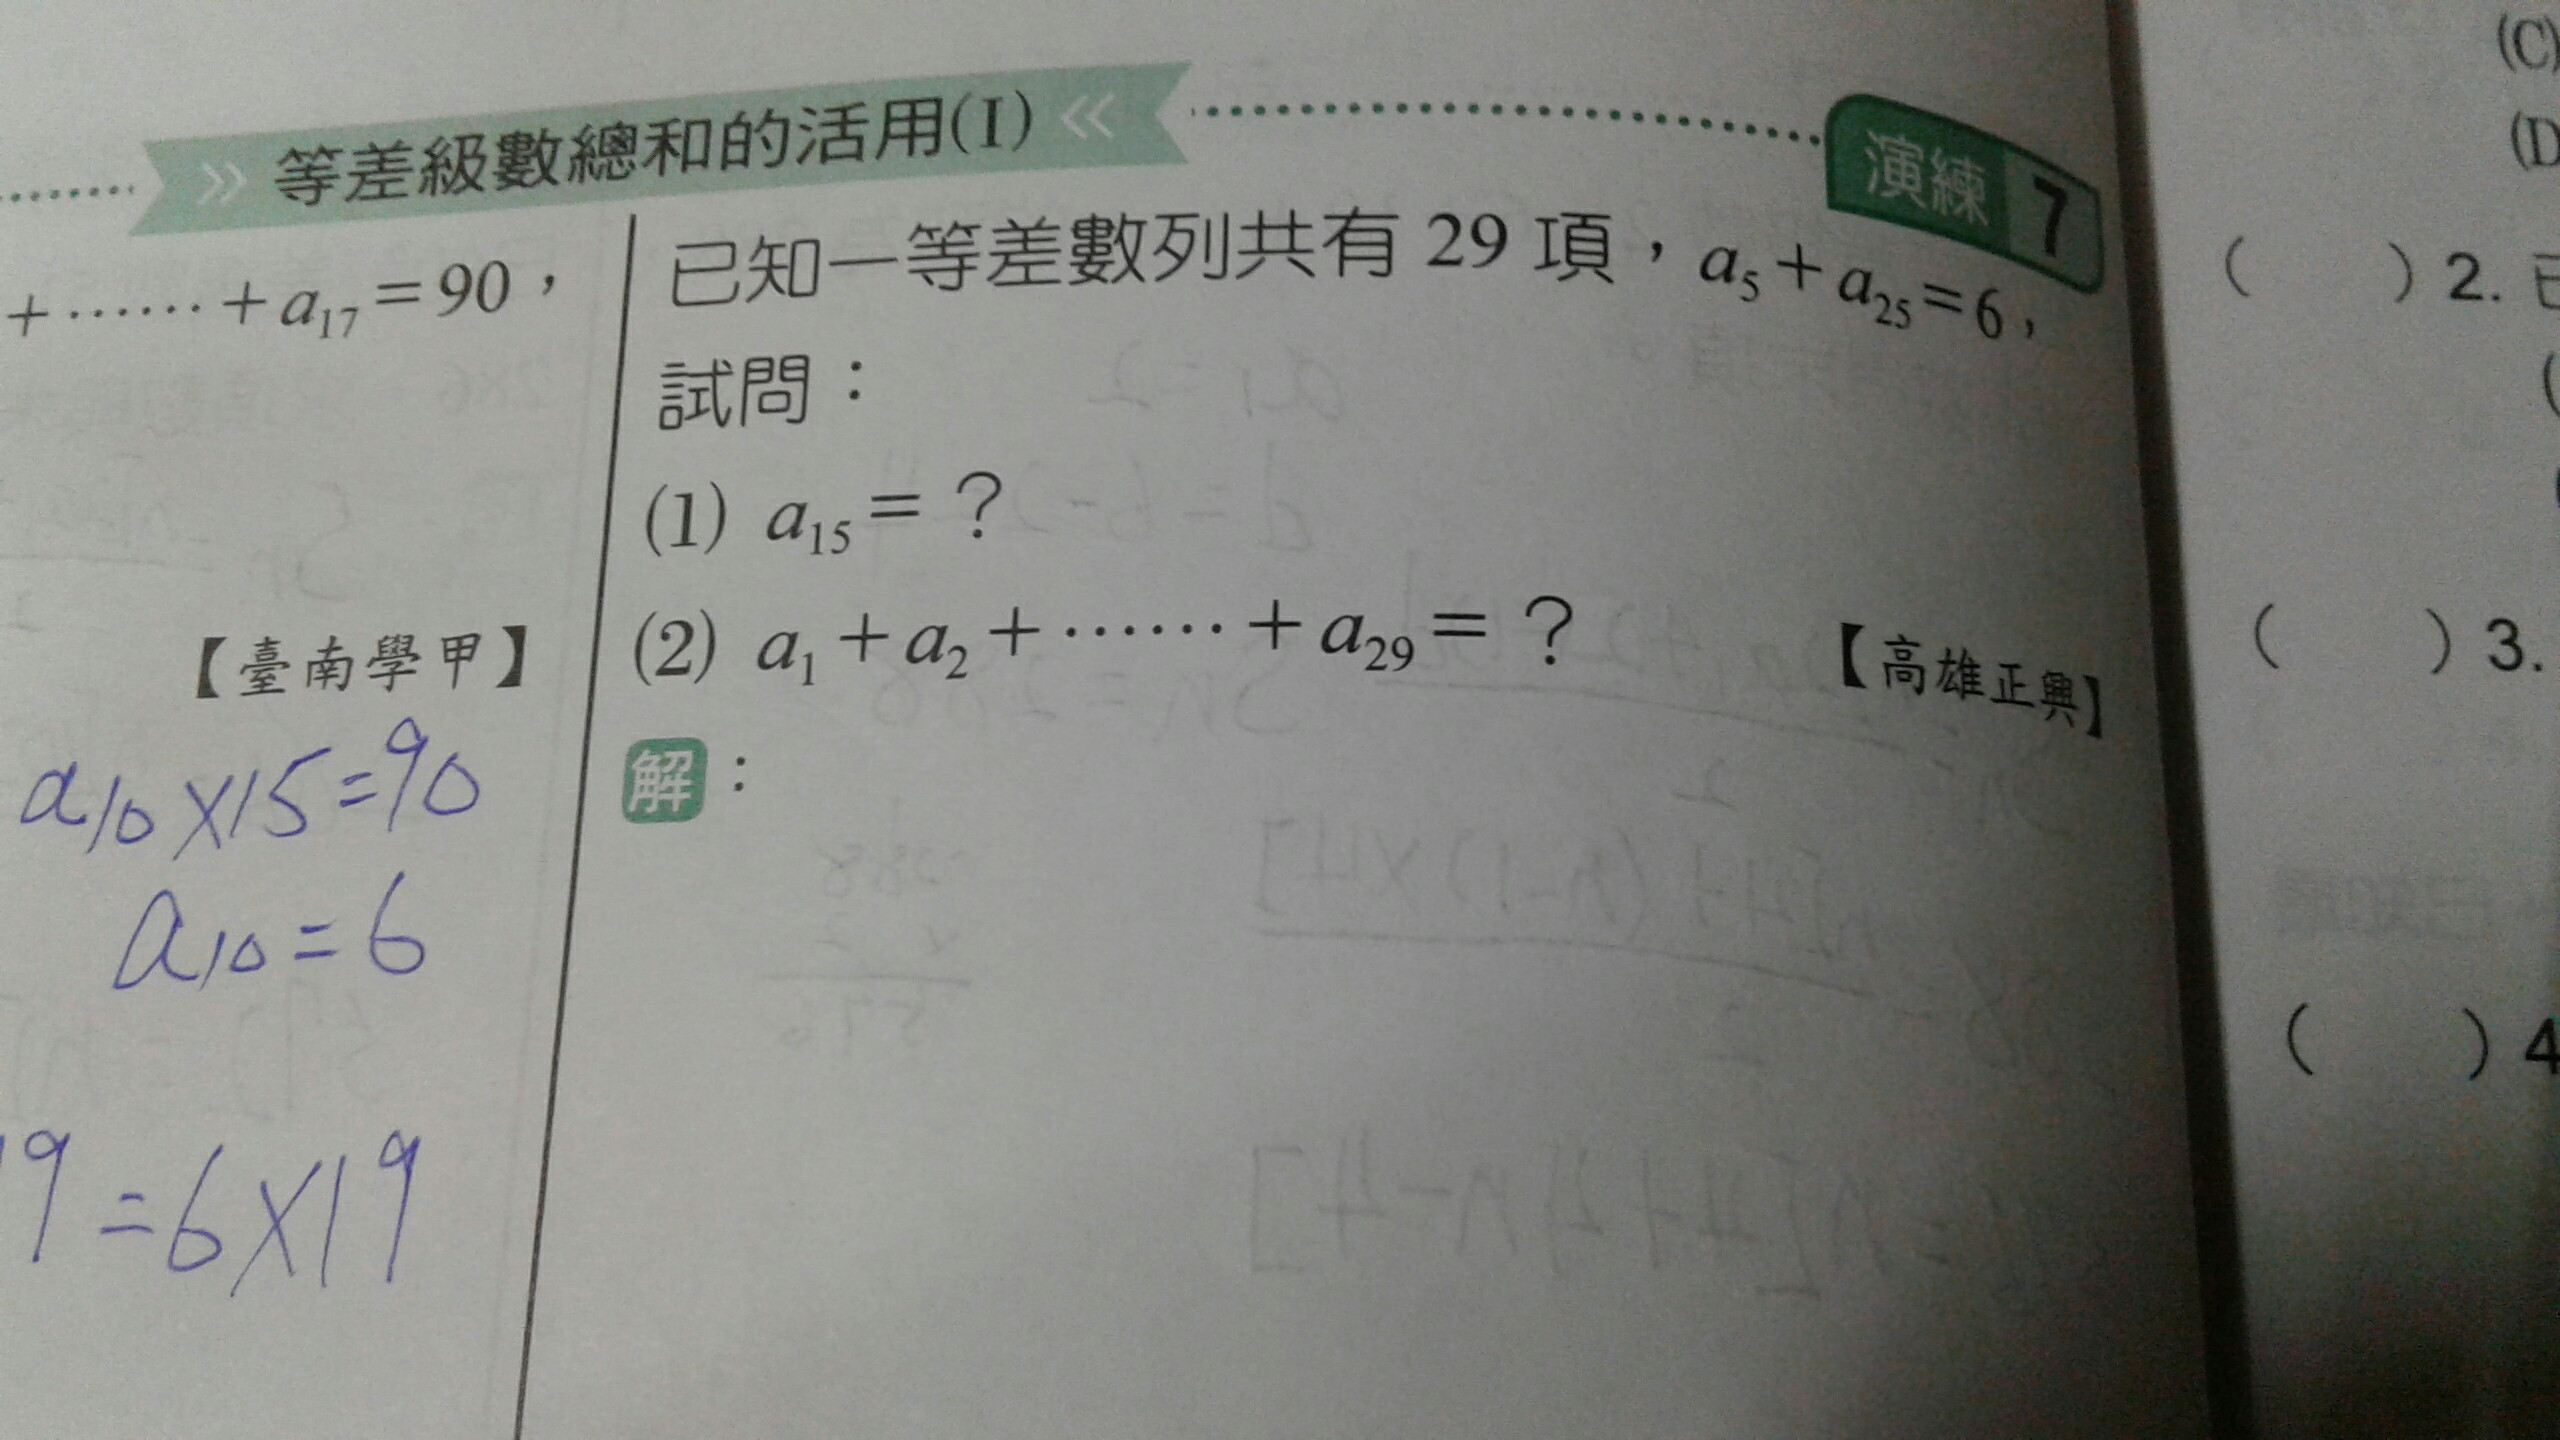 等差級數總和的活用(I)
演練 7
+……+a₁₇=90，
【臺南學甲】
a₁₀×15=90
a₁₀=6
9=6×19
已知一等差數列共有 29 項，a₅+a₂₅=6，
試問：
(1) a₁₅=？
(2) a₁+a₂+……+a₂₉=？
【高雄正興】
解：
(C)
(D
(　)2. 已
(　)3.
(　)4